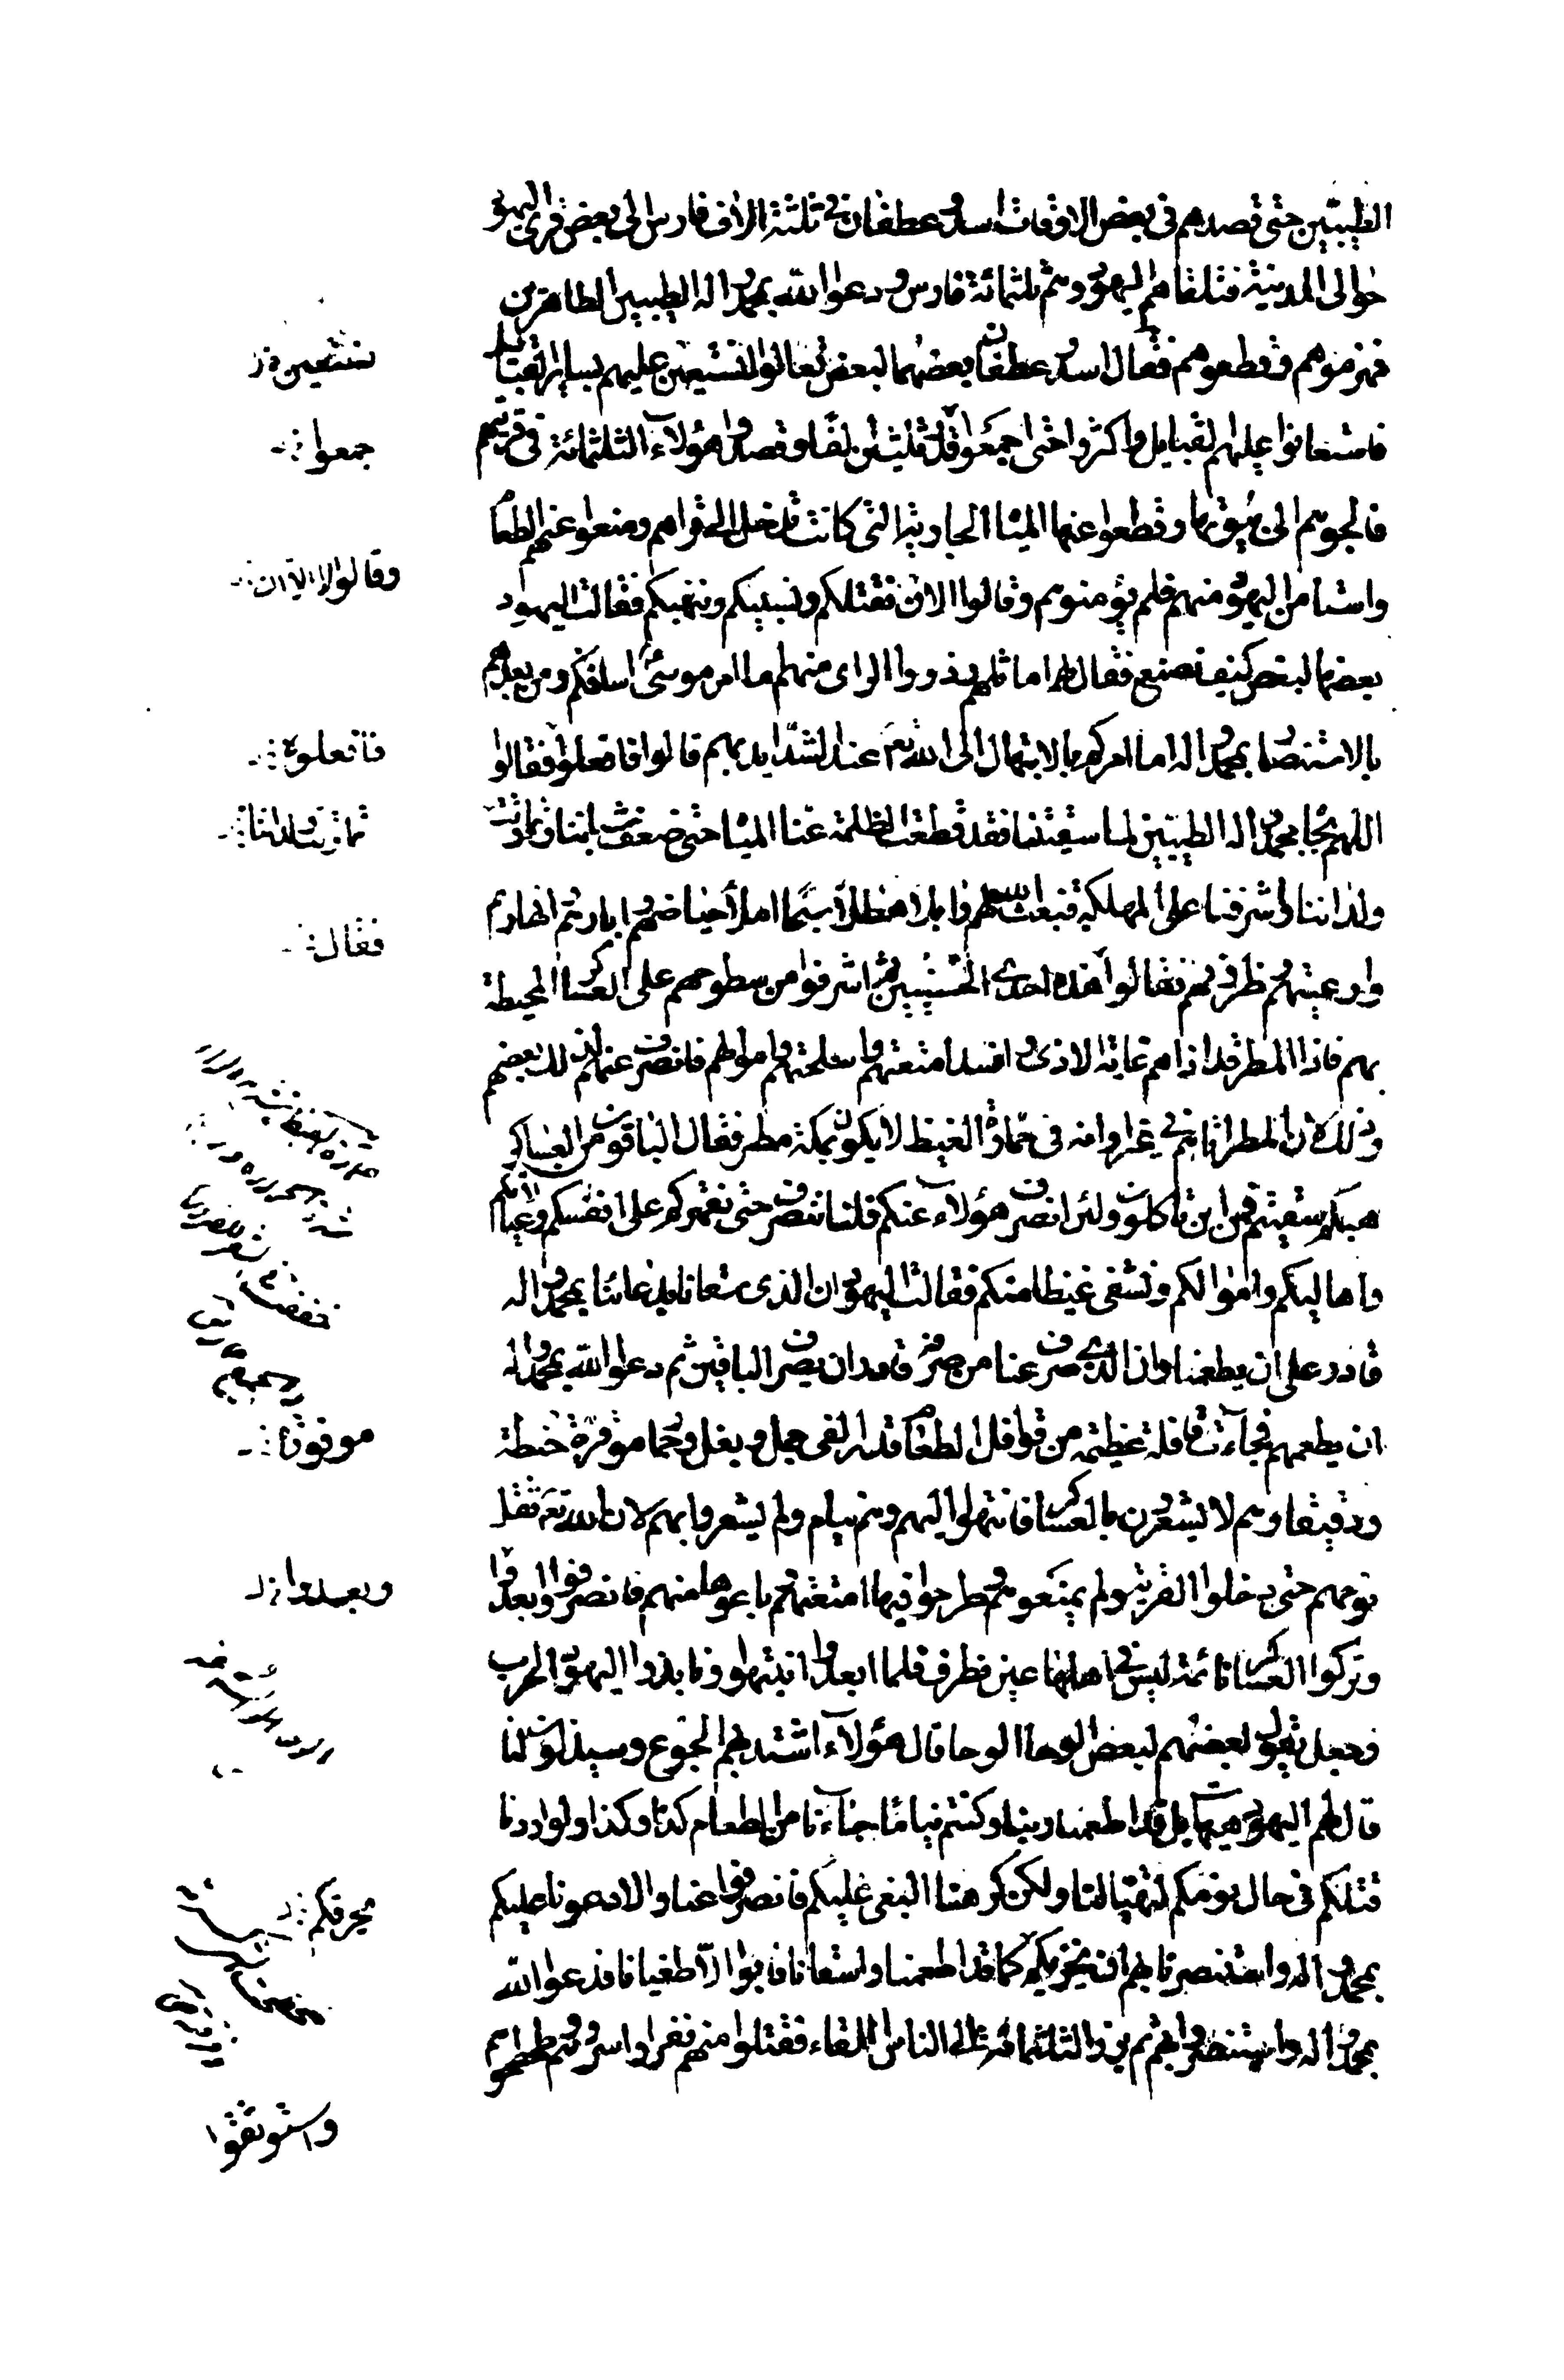 الطيبين حتى قصدهم فى بعض الاوقات اسد و غطفان فى ثلثة الاف فارس الى بعض قرى اليهود
حوالى المدينة فتلقاهم اليهود وهم ثلثمائة فارس ودعوا الله بمحمد واله الطيبين الطاهرين
فهزموهم وقطعوهم فقال اسد و غطفان بعضهما لبعض تعالوا نستعين عليهم بساير القبائل
فاستعانوا عليهم بالقبايل واكثروا حتى اجتمعوا قدر ثلثين الفا وقصدوا هؤلاء الثلثمائة فى قريتهم
فالجوهم الى بيوتها وقطعوا عنها المياه الجارية التى كانت تدخل الى قراهم ومنعوا عنهم الطعام
واستامن اليهود منهم فلم يؤمنوهم وقالوا لا الا ان نقتلكم ونسبيكم وننهبكم فقالت اليهود
بعضها لبعض كيف نصنع فقال لهم اماثلهم وذووا الراى منهم اما امر موسى اسلافكم ومن بعدهم
بالاستنصار بمحمد واله اما امركم بالابتهال الى الله تع عند الشدايد بهم قالوا فافعلوا فقالوا
اللهم بجاه محمد واله الطيبين لما سقيتنا فقد قطعت الظلمة عنا المياه حتى ضعف شباننا وتماوتت
ولداننا واشرفنا على المهلكة فبعث الله لهم وابلا هطلا سحا املأ حياضهم وابارهم وانهارهم
واوعيتهم وظروفهم فقالوا هذه احدى الحسنيين ثم اشرفوا من سطوحهم على العساكر المحيطة
بهم فاذا المطر قد اذاهم غاية الاذى و افسد امتعتهم واسلحتهم واموالهم فانصرف عنهم لذلك بعضهم
وذلك ان المطر اتاهم فى غير اوانه فى حمارة القيظ لا يكون بمكة مطر فقال الباقون من العساكر
هبكم سقيتم فمن اين تاكلون ولئن انصرف هؤلاء عنكم فلسنا ننصرف حتى نقهركم على انفسكم وعيالاتكم
واهاليكم واموالكم ونشفى غيظا منكم فقالت اليهود ان الذى سقانا بدعائنا بمحمد واله
قادر على ان يطعمنا وان الذى صرف عنا من صرفه قادر ان يصرف الباقين ثم دعوا الله بمحمد واله
ان يطعمهم فجاءت قافلة عظيمة من قوافل الطعام قدر الفى جمل و بغل وحمار موقرة حنطة
ودقيقا وهم لا يشعرون بالعساكر فانتهوا اليهم وهم نيام ولم يشعروا بهم لان الله تع ثقل
نومهم حتى دخلوا القرية ولم يمنعوهم وطرحوا فيها امتعتهم وباعوها منهم فانصرفوا وابعدوا
وتركوا العساكر نائمة ليس فى اهلها عين تطرف فلما ابعدوا انتبهوا ونابذوا اليهود الحرب
وجعل يقول بعضهم لبعض الوحا الوحا فان هؤلاء اشتد بهم الجوع وسيذلون لنا
قال لهم اليهود هيهات بل قد اطعمنا ربنا وكنتم نياما جاءنا من الطعام كذا وكذا ولو اردنا
قتلكم فى حال نومكم لتهيا لنا ولكن كرهنا البغى عليكم فانصرفوا عنا والا دعونا عليكم
بمحمد واله واستنصرنا بهم ان يخزيكم كما قد اطعمنا واسقانا فابوا الا طغيانا فدعوا الله
بمحمد واله واستنصروا بهم ثم برز الثلثمائة الى الناس للقاء فقتلوا منهم نفرا واسروهم وطحطحوهم
نستعين
جمعوا
وقالوا لا الا ان
فافعلوه
فقال
موفورة
وبعدوا
واستوثقوا